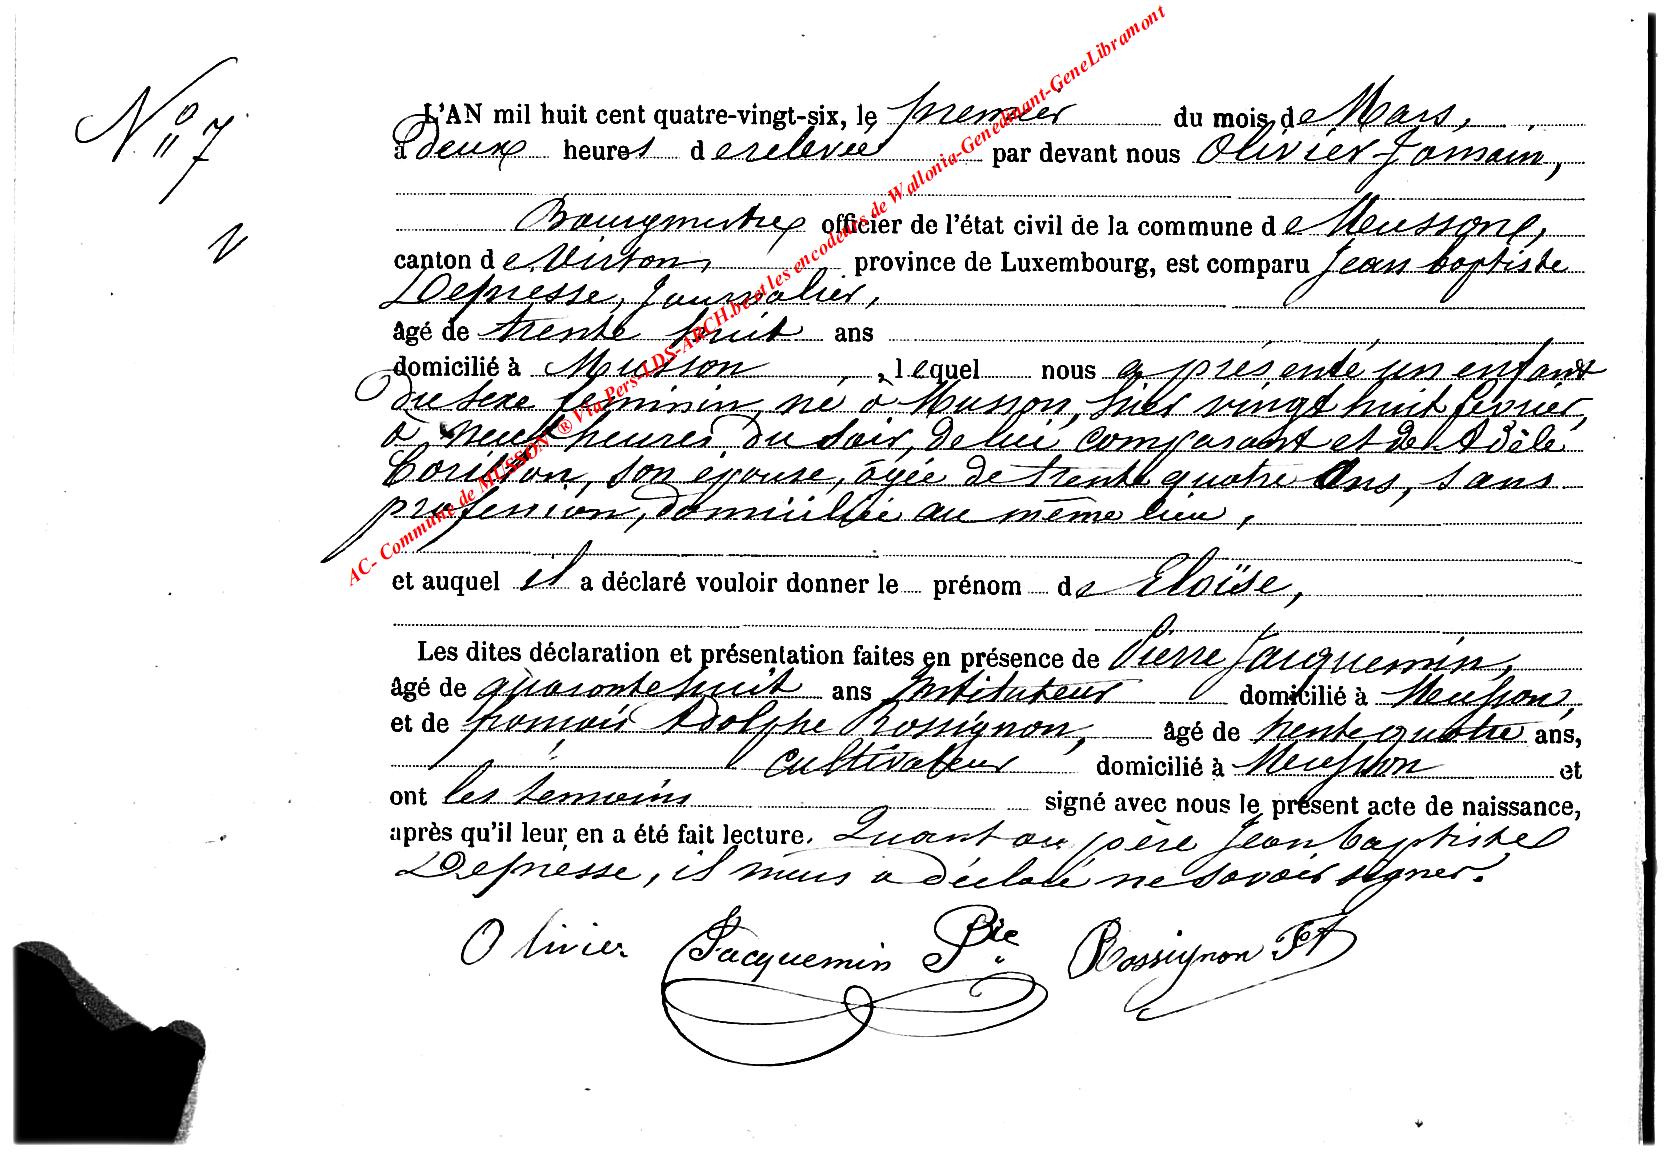 N° 7
L'AN mil huit cent quatre-vingt-six, le premier du mois de Mars,
à Deux heures de relevée par devant nous Olivier
Bourgmestre officier de l'état civil de la commune de Musson,
canton de Virton, province de Luxembourg, est comparu Jean baptiste
Depresse, Journalier,
âgé de trente huit ans
domicilié à Musson, lequel nous a présenté un enfant
du sexe feminin, né à Musson, hier vingt huit fevrier,
à neuf heures du soir, de lui comparant et de Adèle
son épouse, âgée de trente quatre ans, sans
profession, domiciliée au même lieu,
et auquel il a déclaré vouloir donner le prénom de Eloïse,
Les dites déclaration et présentation faites en présence de Pierre Jacquemin,
âgé de quarante huit ans Instituteur domicilié à Musson,
et de françois Adolphe Rossignon, âgé de trente quatre ans,
cultivateur domicilié à Musson et
ont les temoins signé avec nous le présent acte de naissance,
après qu'il leur en a été fait lecture. Quant au père Jean baptiste
Depresse, il nous a déclaré ne savoir signer.
Olivier Jacquemin Pre Rossignon Fs A
AC- Commune de MUSSON ® Via Pers-LDS-ARCH.be et les encodeurs de Wallonia-Genedinant-GeneLibramont